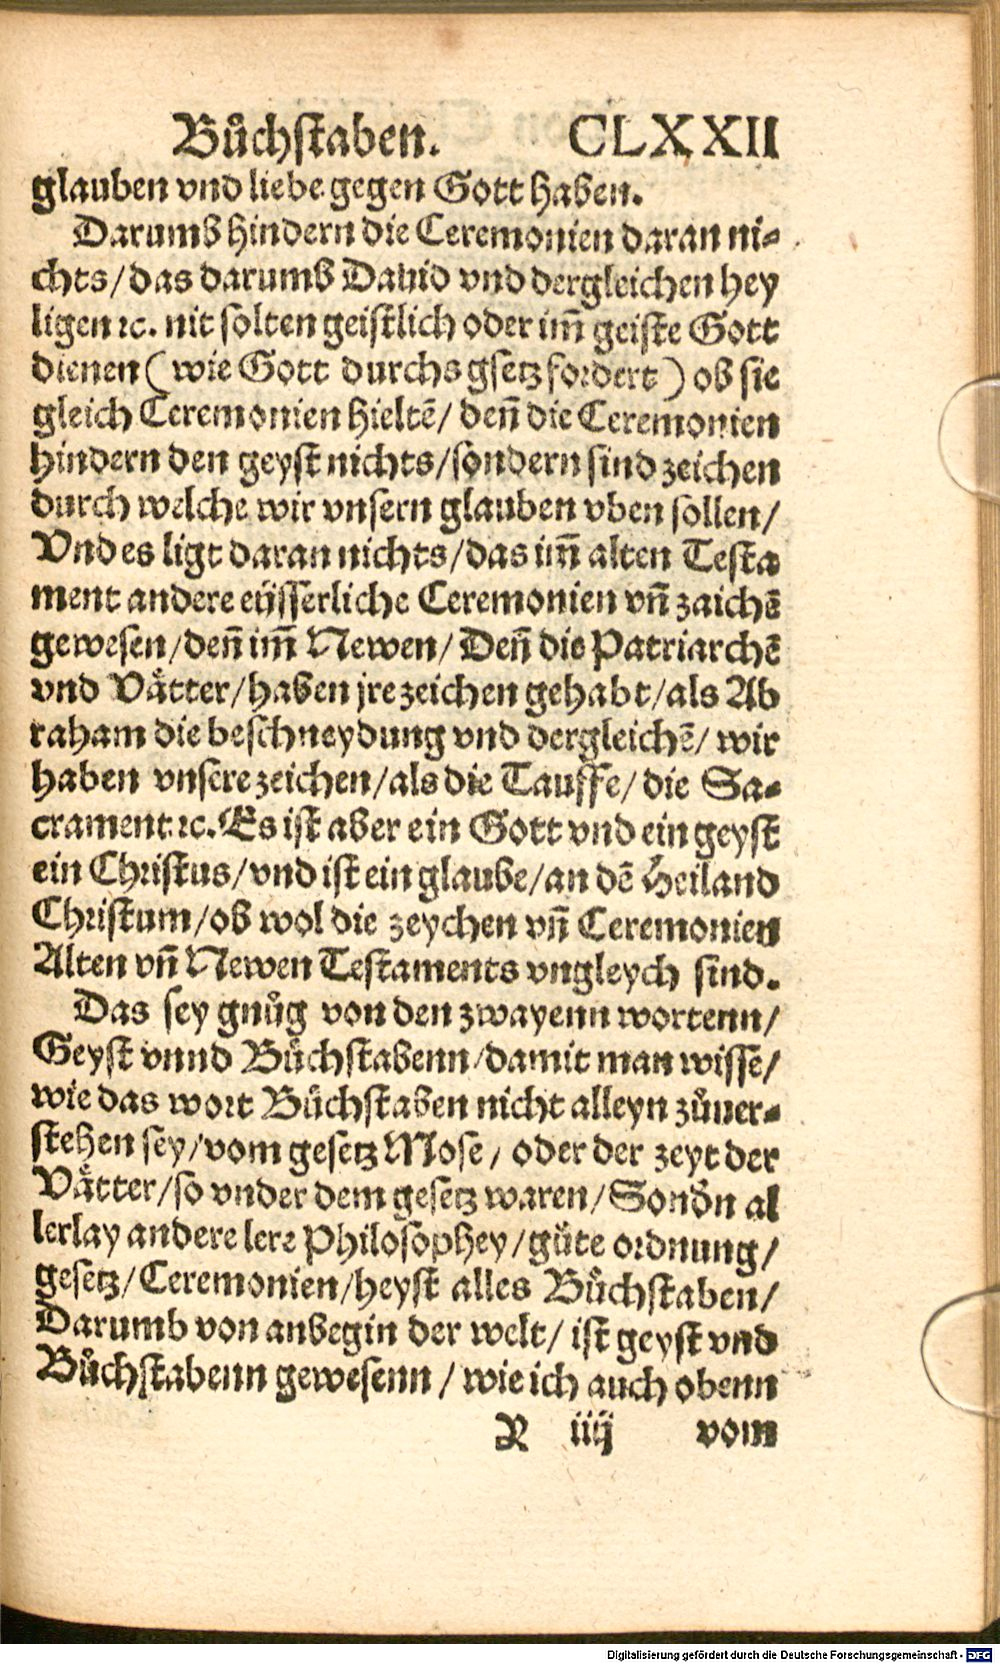 Bůchstaben. CLXXII
glauben vnd liebe gegen Gott haben.
Darumb hindern die Ceremonien daran ni-
chts/das darumb Dauid vnd dergleichen hey
ligen ꝛc. nit solten geistlich oder im̃ geiste Gott
dienen (wie Gott durchs gsetz fordert) ob sie
gleich Ceremonien hieltẽ/ deñ die Ceremonien
hindern den geyst nichts/sondern sind zeichen
durch welche wir vnsern glauben vben sollen/
Vnd es ligt daran nichts/das im̃ alten Testa
ment andere eüsserliche Ceremonien vñ zaichẽ
gewesen/deñ im̃ Newen/ Deñ die Patriarchẽ
vnd Vaͤtter/haben jre zeichen gehabt/als Ab
raham die beschneydung vnd dergleichẽ/ wir
haben vnsere zeichen/als die Tauffe/ die Sa-
crament ꝛc. Es ist aber ein Gott vnd ein geyst
ein Christus/vnd ist ein glaube/an dẽ Heiland
Christum/ob wol die zeychen vñ Ceremonien
Alten vñ Newen Testaments vngleych sind.
Das sey gnůg von den zwayenn wortenn/
Geyst vnnd Bůchstabenn/damit man wisse/
wie das wort Bůchstaben nicht alleyn zůuer-
stehen sey/vom gesetz Mose/ oder der zeyt der
Vaͤtter/so vnder dem gesetz waren/Sonðn al
lerlay andere lere Philosophey/gůte ordnung/
gesetz/Ceremonien/heyst alles Bůchstaben/
Darumb von anbegin der welt/ ist geyst vnd
Bůchstabenn gewesenn/wie ich auch obenn
R iiij vom
Digitalisierung gefördert durch die Deutsche Forschungsgemeinschaft - DFG